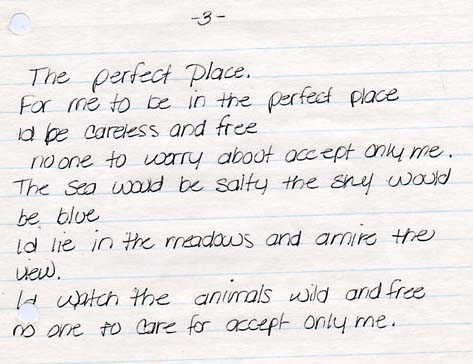 -3-
The perfect Place.
For me to be in the perfect place
Id be careless and free
no one to worry about accept only me.
The sea would be salty the sky would
be blue
Id lie in the meadows and amire the
view.
Id watch the animals wild and free
no one to care for accept only me.